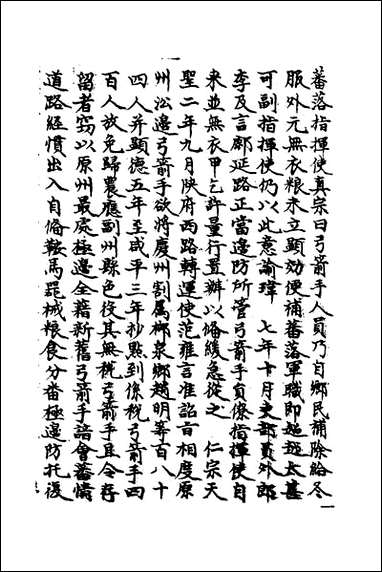 蕃落指揮使真宗曰弓箭手人員乃自鄉民補除給冬
服外元無衣粮未立顯効便補蕃落軍職即越太甚
可副指揮使仍以此意諭瑋　七年十月吏部員外郎
李及言鄜延路正當邊防所管弓箭手員僚指揮使自
來並無衣甲乞許量行置辦以備緩急從之　仁宗天
聖二年九月陝府西路轉運使范雍言准詔百相度原
州沿邊弓箭手欲將慶州割属柳泉鄉趙明等百八十
四人并顯德五年至咸平三年抄點到係税弓箭手四
百人放免歸農應副州縣色役其無税弓箭手且令存
留者竊以原州最處極邊全藉新舊弓箭手諳會蕃情
道路經慣出入自備鞍馬噐械粮食分番極邊防托復